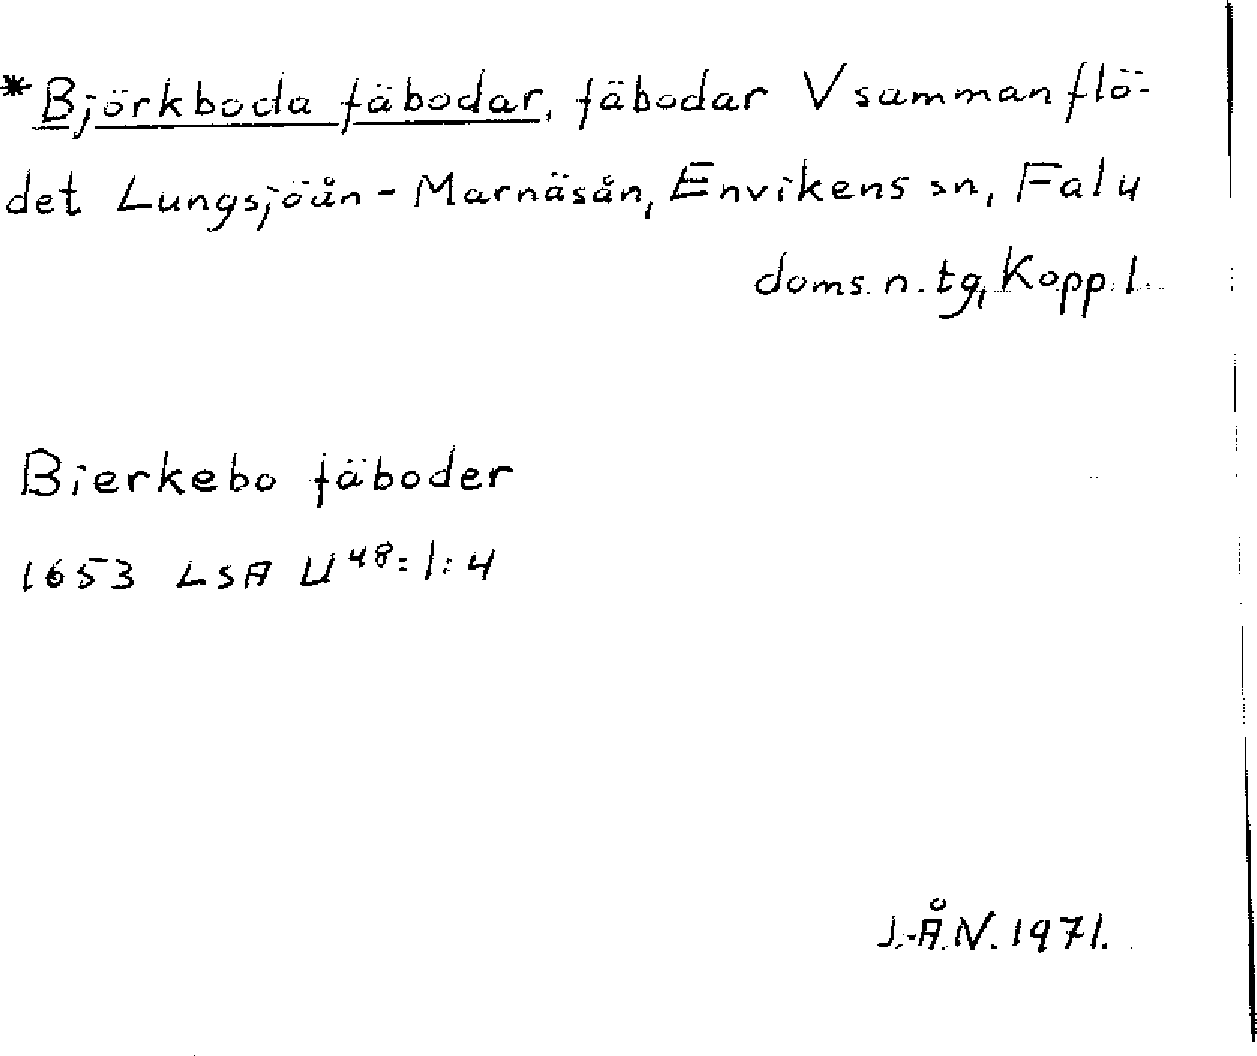 *Björkboda fäbodar, fäbodar V sammanflö-
det Lungsjöån - Marnäsån, Envikens sn, Falu
doms.n.tg, Kopp.l.
Bierkebo fäboder
1653 LSA U48:1:4
J.-Å.N. 1971.